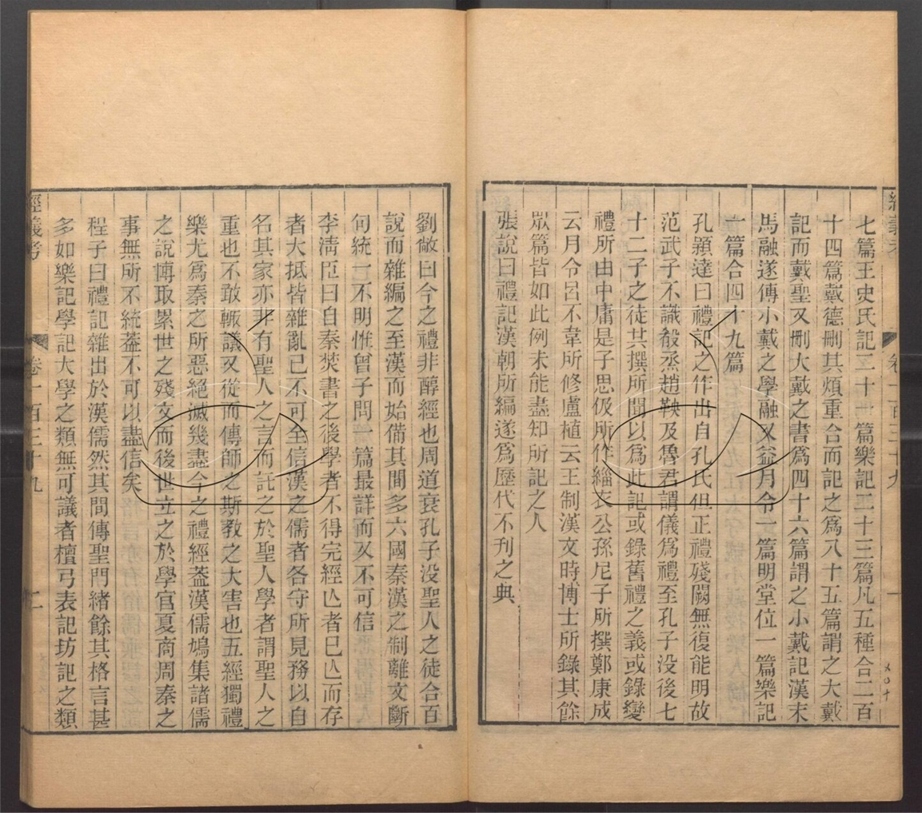 七篇王史氏記二十一篇樂記二十三篇凡五種合二百
十四篇戴德刪其煩重合而記之爲八十五篇謂之大戴
記而戴聖又刪大戴之書爲四十六篇謂之小戴記漢末
馬融遂傳小戴之學融又益月令一篇明堂位一篇樂記
一篇合四十九篇
孔穎達曰禮記之作出自孔氏但正禮殘闕無復能明故
范武子不識殽烝趙鞅及魯君謂儀爲禮至孔子没後七
十二子之徒共撰所聞以爲此記或錄舊禮之義或錄變
禮所由中庸是子思伋所作緇衣公孫尼子所撰鄭康成
云月令呂不韋所修盧植云王制漢文時博士所錄其餘
眾篇皆如此例未能盡知所記之人
張說曰禮記漢朝所編遂爲歷代不刊之典
經義考 卷一百三十九 一
劉敞曰今之禮非醇經也周道衰孔子没聖人之徒合百
說而雜編之至漢而始備其間多六國秦漢之制離文斷
句統一不明惟曾子問一篇最詳而又不可信
李清臣曰自秦焚書之後學者不得完經亾者已亾而存
者大抵皆雜亂已不可全信漢之儒者各守所見務以自
名其家亦非有聖人之言而託之於聖人學者謂聖人之
重也不敢輙議又從而傳師之斯教之大害也五經獨禮
樂尤爲秦之所惡絕滅幾盡今之禮經葢漢儒鳩集諸儒
之說博取累世之殘文而後世立之於學官夏商周秦之
事無所不統葢不可以盡信矣
程子曰禮記雜出於漢儒然其間傳聖門緒餘其格言甚
多如樂記學記大學之類無可議者檀弓表記坊記之類
經義考 卷一百三十九 二